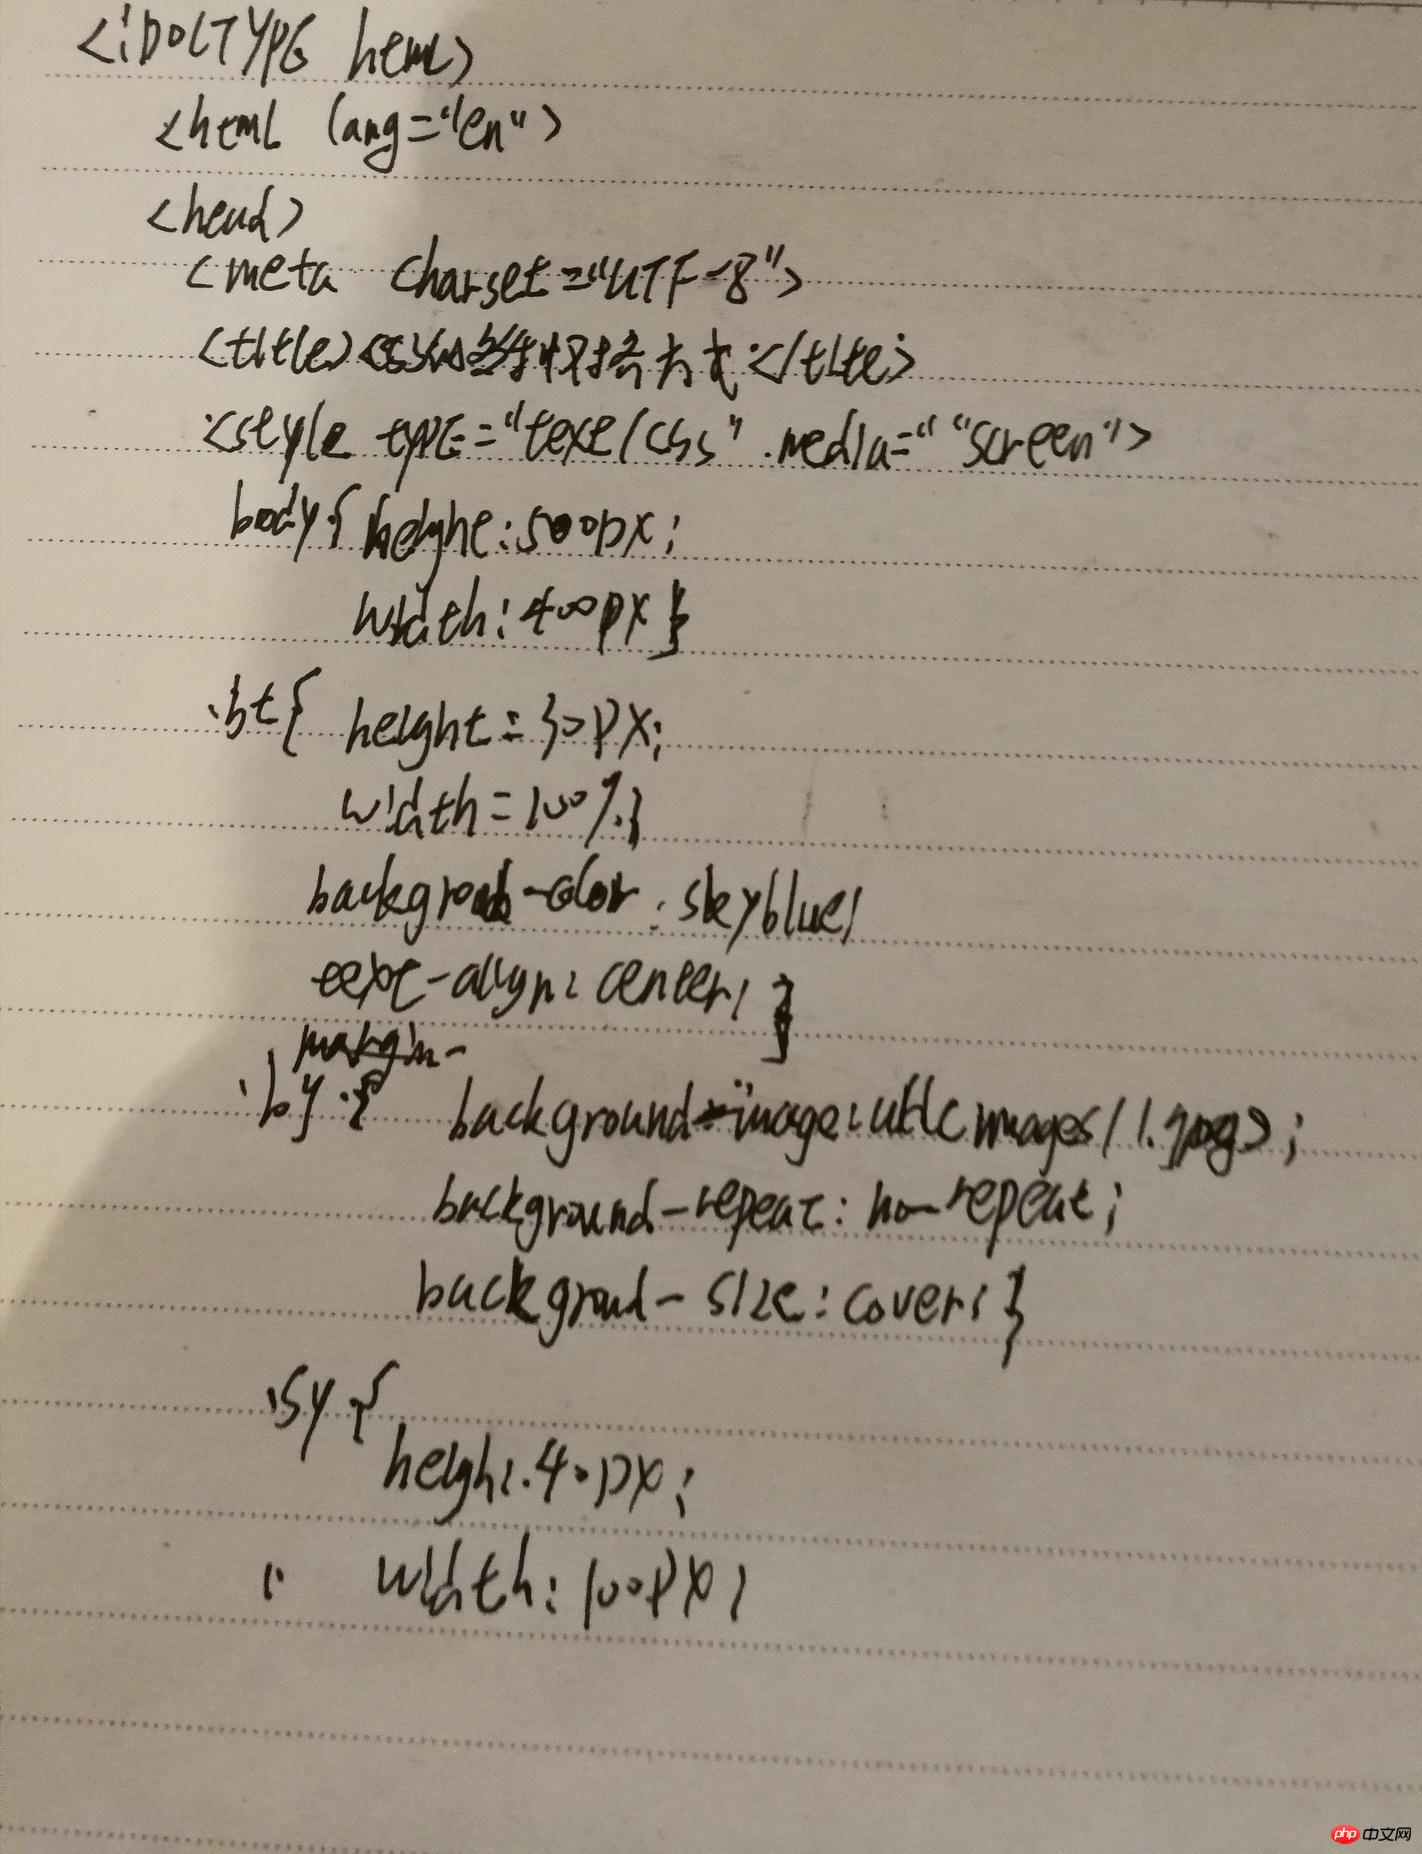 <!DOCTYPE html>
<html lang="en">
<head>
<meta charset="UTF-8">
<title>css 方式</title>
<style type="text/css" media=" "screen">
body{ height:500px;
width:400px}
.bt{ height:30px;
width=100%}
background-color:skyblue;
text-align:center; }
margin-
.by{ background-image:url(images/1.jpg);
background-repeat:no-repeat;
backgroud-size:cover;}
.sy{
height:40px;
width:100px;
php 中文网